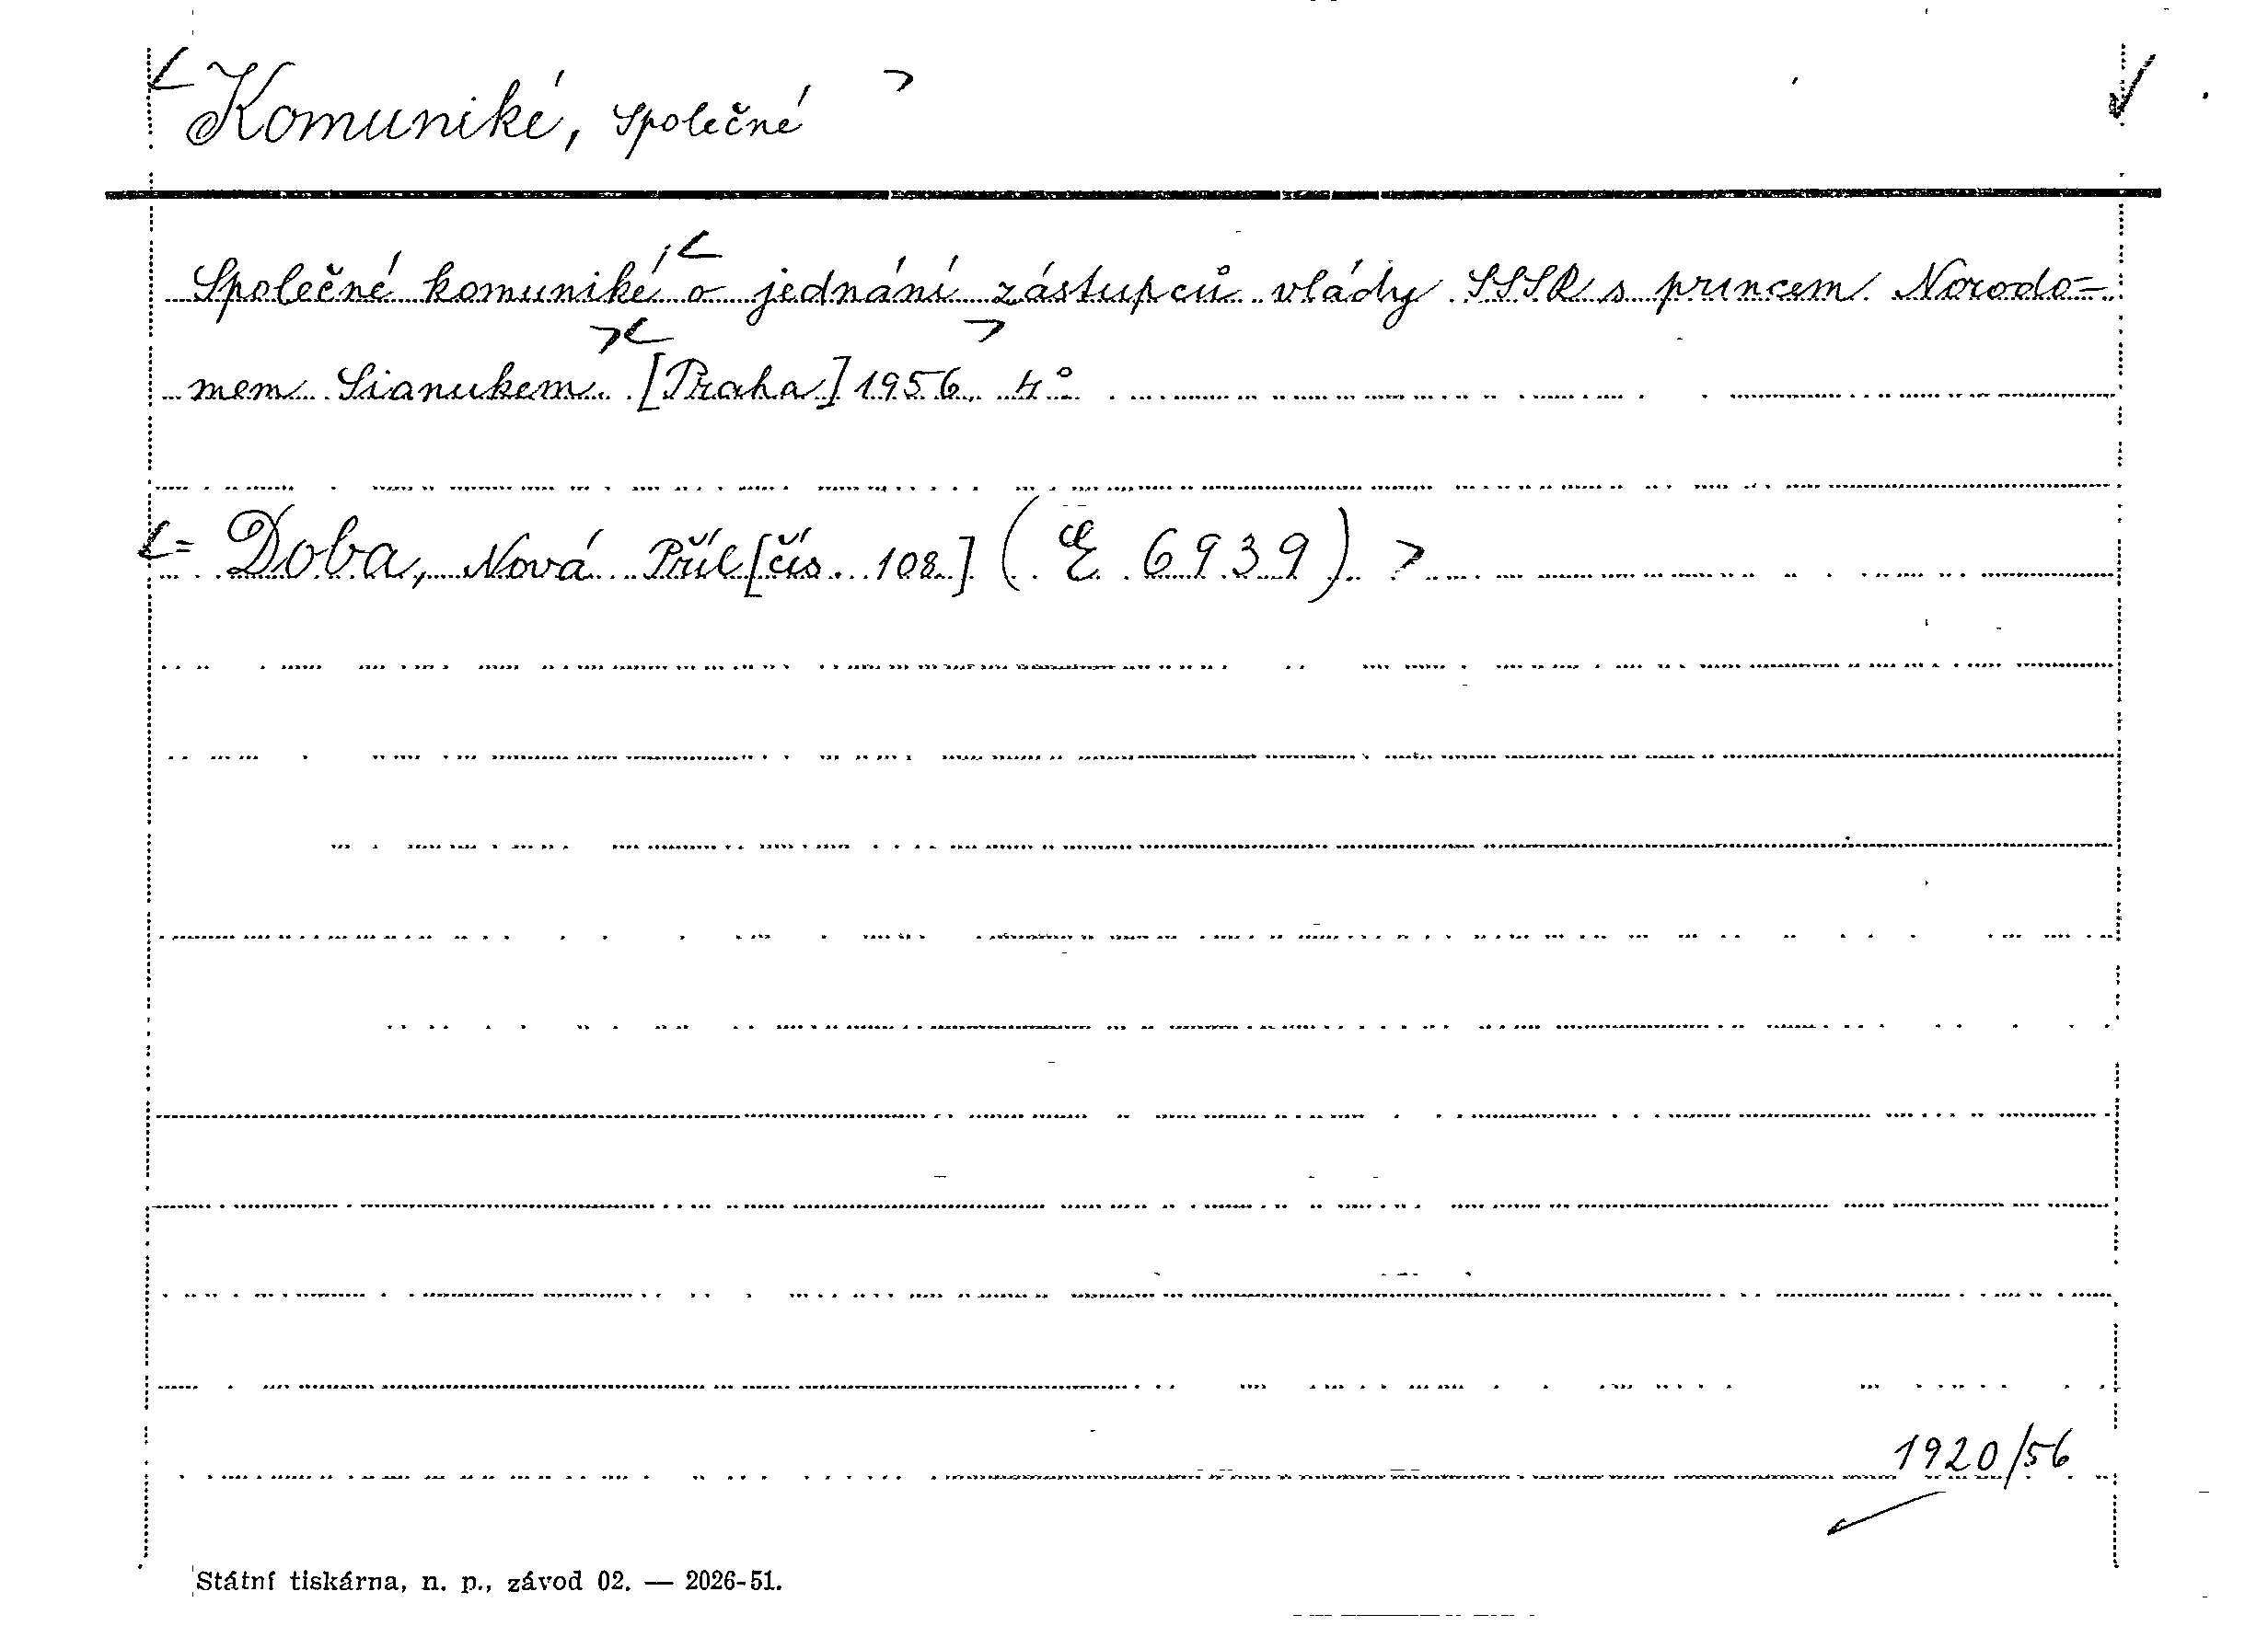 Komuniké, společné
Společné komuniké o jednání zástupců vlády SSSR s princem Norodo=
mem Sianukem. [Praha] 1956. 4°
= Doba, Nová Příl[čís. 108] (E 6939)
1920/56
Státní tiskárna, n. p., závod 02. — 2026-51.